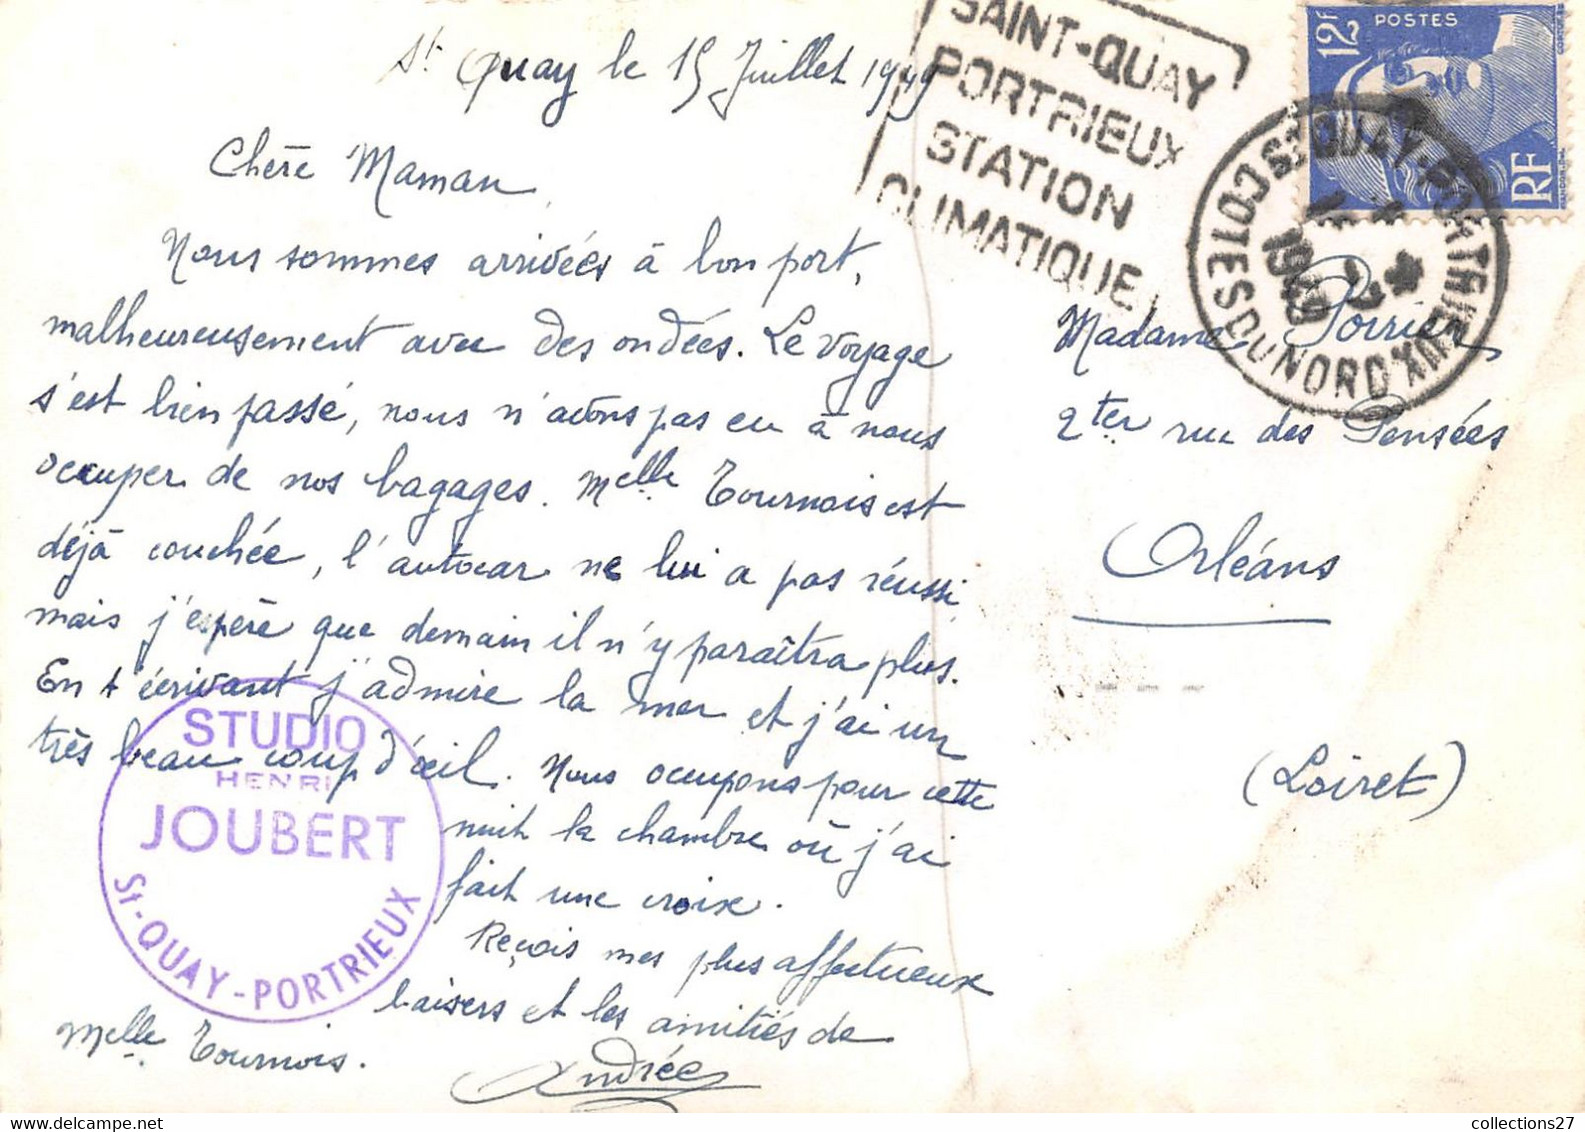 St Quay le 15 Juillet 1949
Chère Maman,
Nous sommes arrivées à bon port,
malheureusement avec des ondées. Le voyage
s'est bien passé, nous n'avons pas eu à nous
occuper de nos bagages. Melle Tournois est
déjà couchée, l'autocar ne lui a pas réussi
mais j'espère que demain il n'y paraîtra plus.
En t'écrivant j'admire la mer et j'ai un
très beau coup d'œil. Nous occupons pour cette
nuit la chambre où j'ai
fait une croix.
Reçois mes plus affectueux
baisers et les amitiés de
Melle Tournois.
Andrée
STUDIO
HENRI
JOUBERT
St-QUAY-PORTRIEUX
SAINT-QUAY
PORTRIEUX
STATION
CLIMATIQUE
12F POSTES
RF
ST QUAY-PORTRIEUX
1949
COTES DU NORD
Madame Poirier
2ter rue des Pensées
Orléans
(Loiret)
collections27